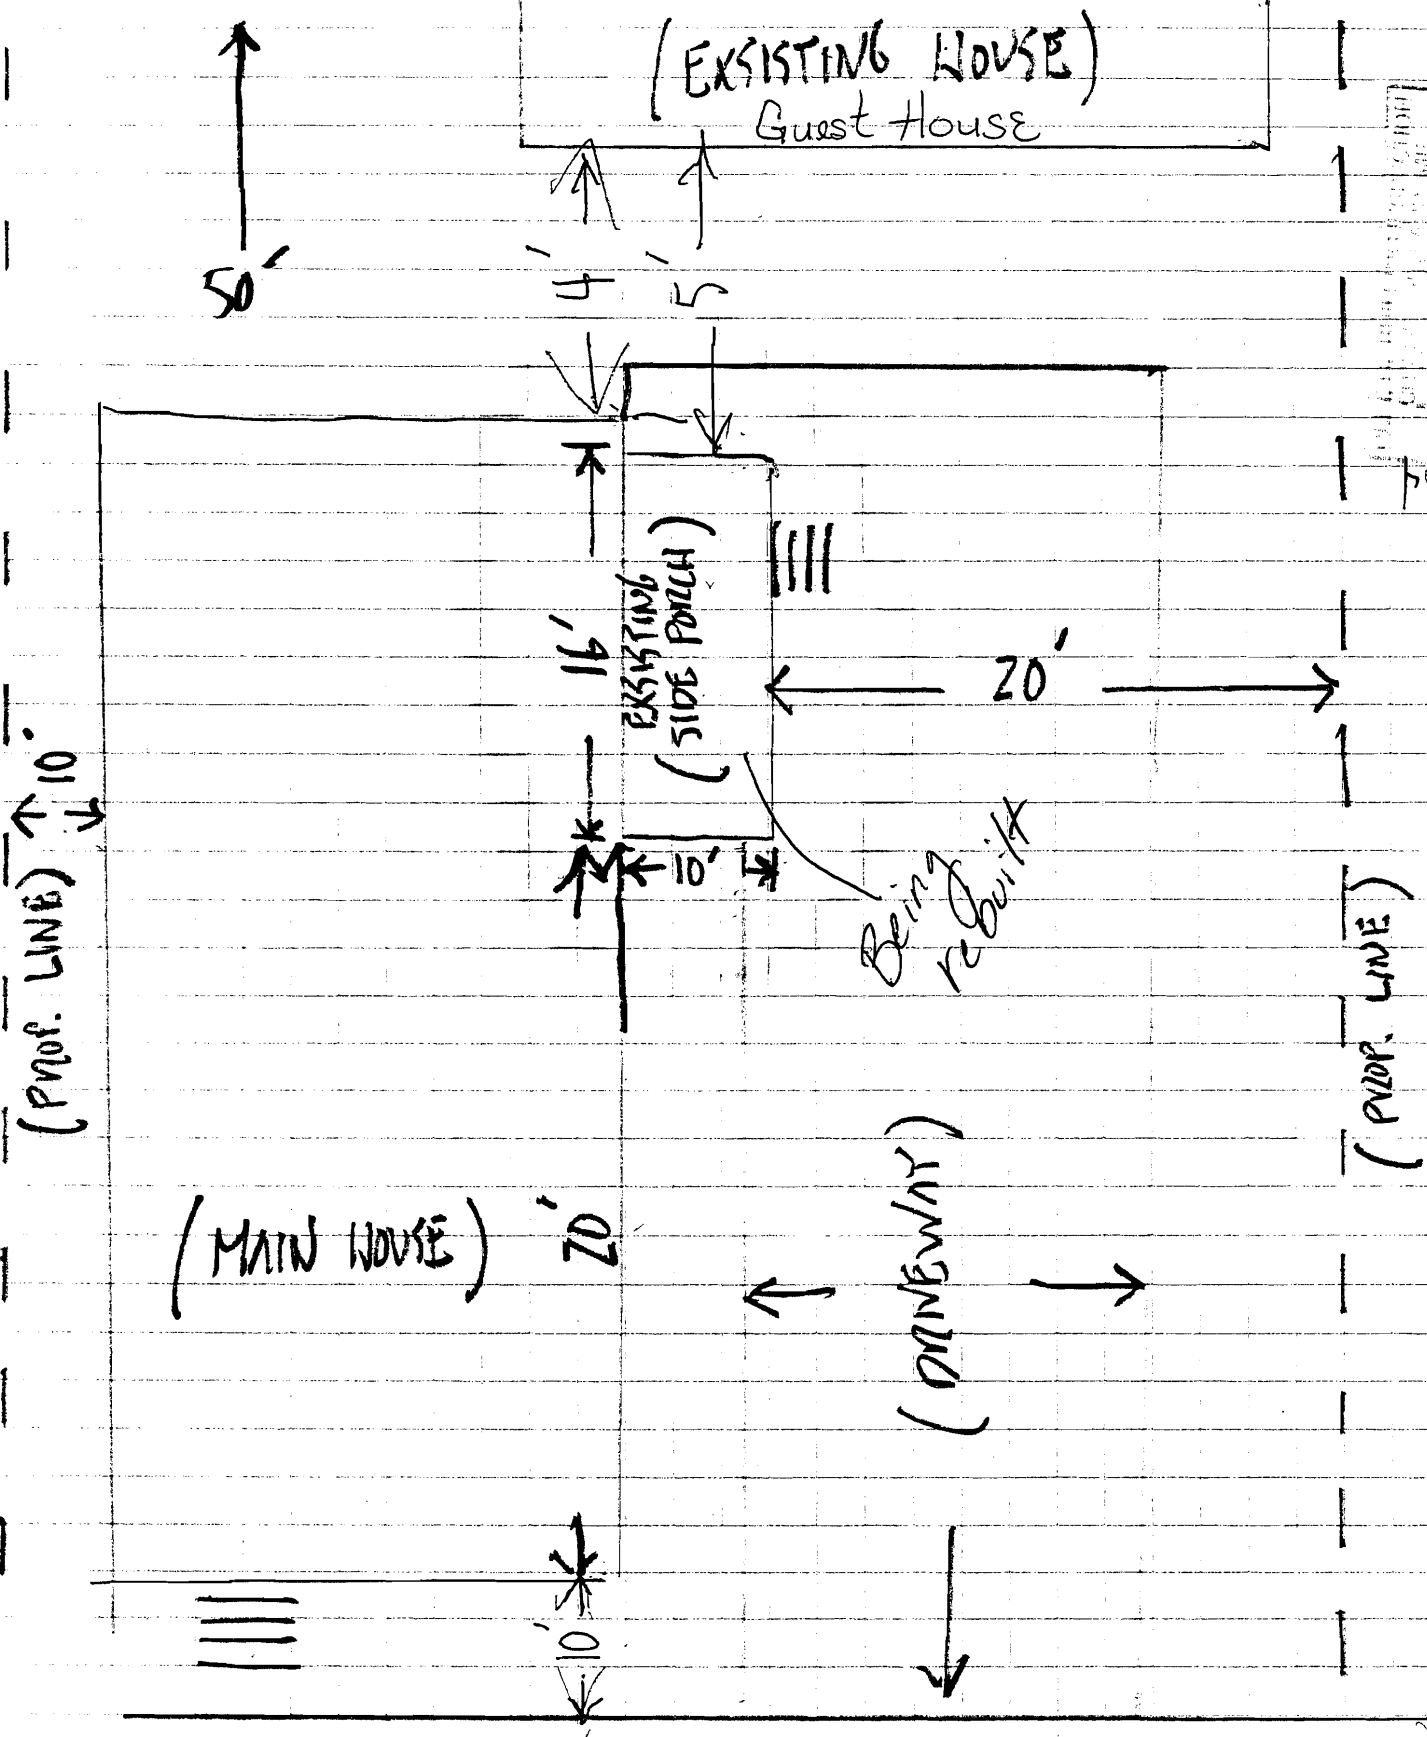 (EXSISTING HOUSE)
Guest House
50'
4'
5'
16'
EXSISTING
(SIDE PORCH)
20'
10'
(PROP. LINE)
10'
Being
rebuilt
(PROP. LINE)
(MAIN HOUSE)
20'
(DRIVEWAY)
10'